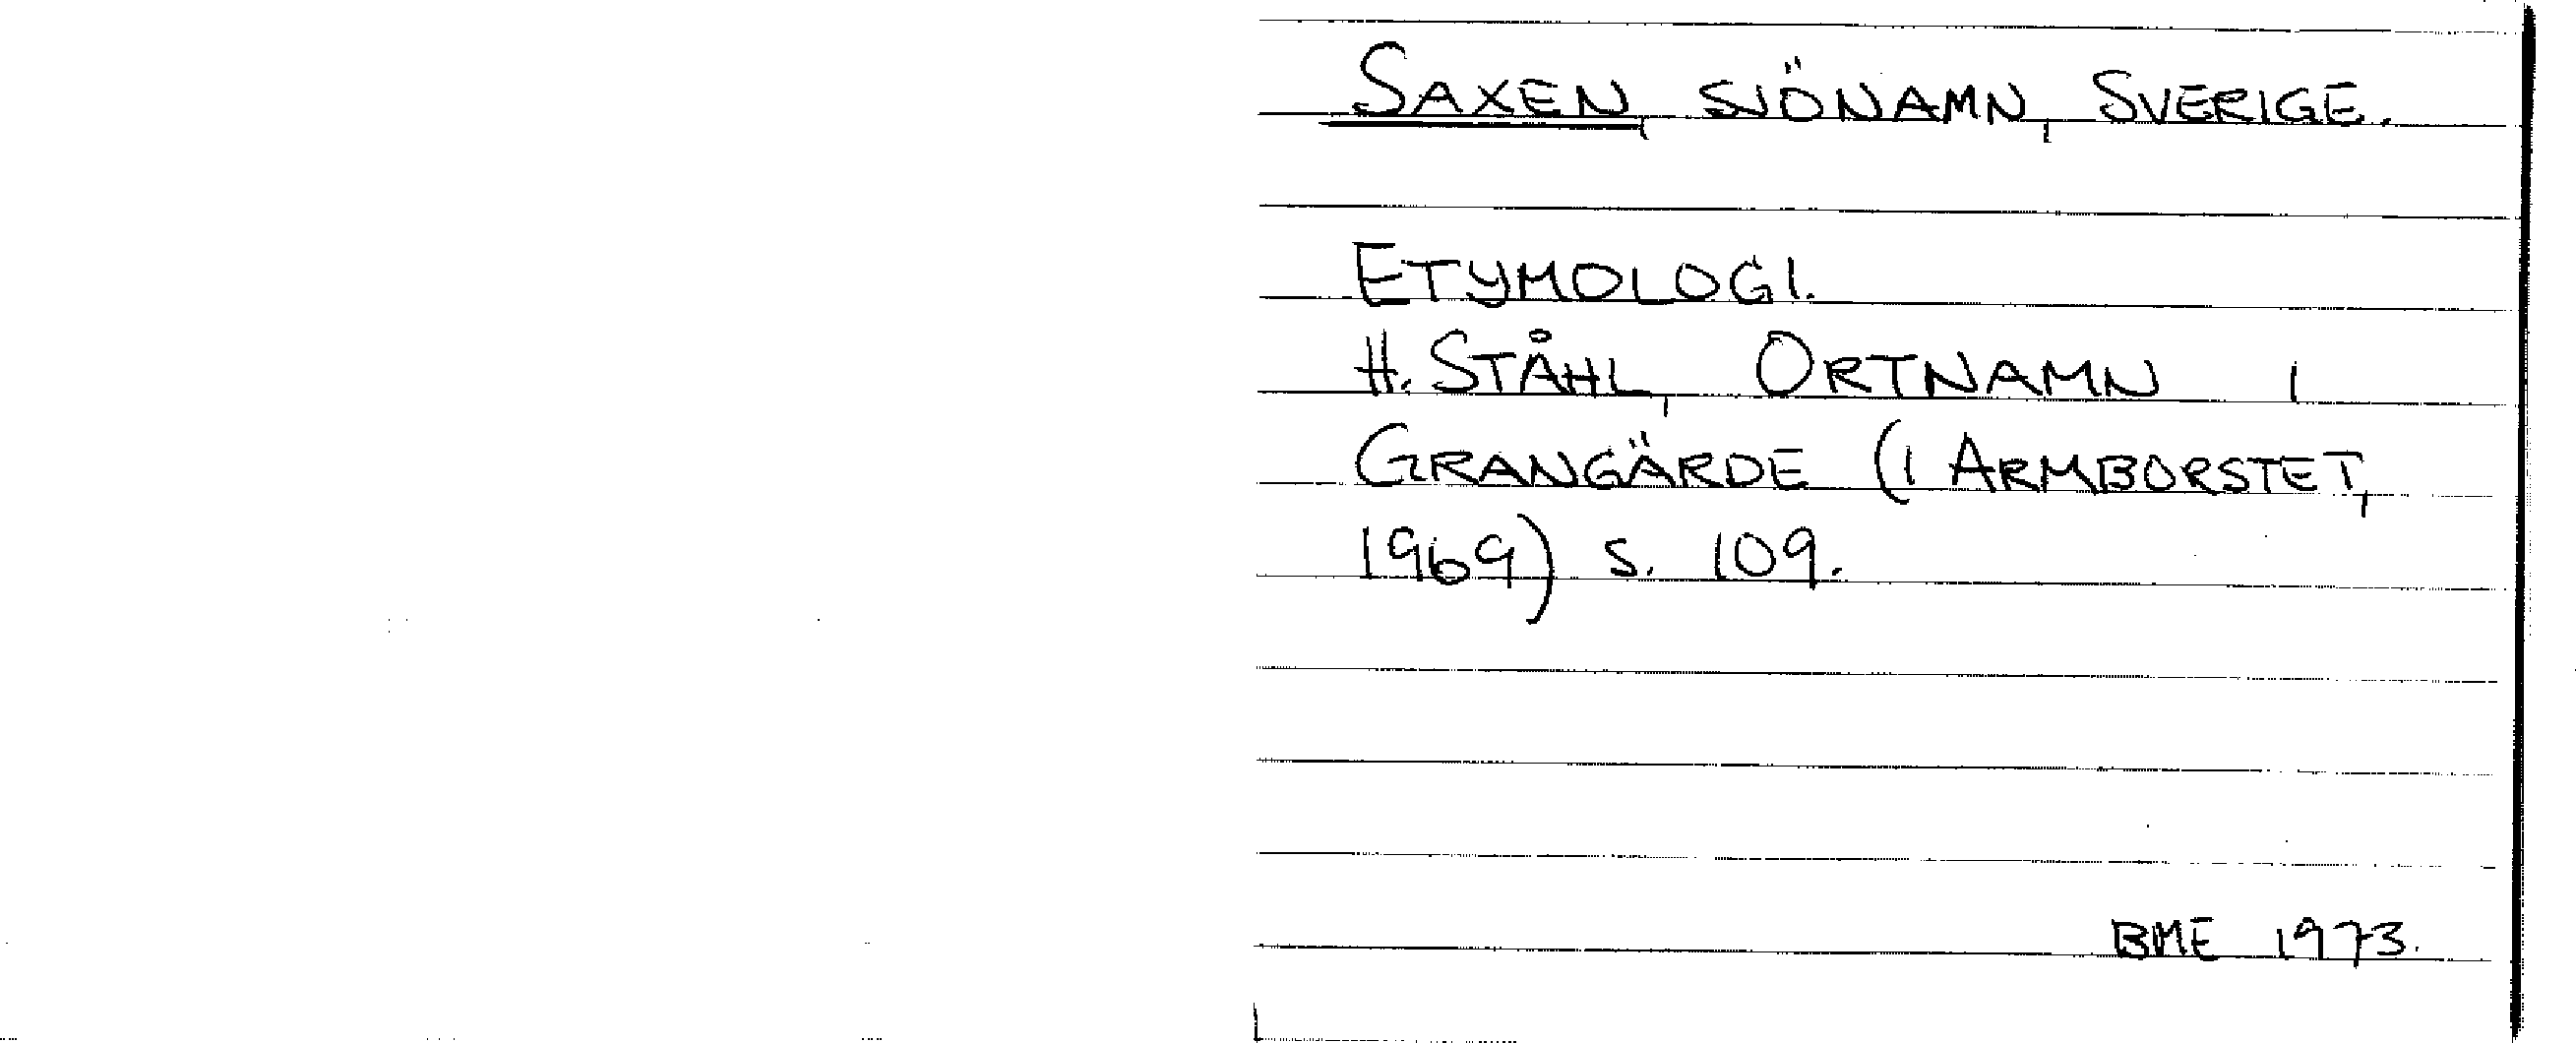 SAXEN, SJÖNAMN, SVERIGE.
ETYMOLOGI.
H. STÅHL, ORTNAMN I
GRANGÄRDE (I ARMBORSTET,
1969) S. 109.
BME 1973.